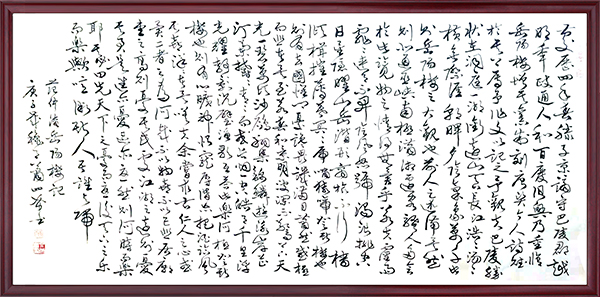 慶曆四年春滕子京謫守巴陵郡越
明年政通人和百廢具興乃重修
岳陽樓增其舊制刻唐賢今人詩賦
於其上屬予作文以記之予觀夫巴陵勝
狀在洞庭一湖銜遠山吞長江浩浩湯湯
橫無際涯朝暉夕陰氣象萬千此
則岳陽樓之大觀也前人之述備矣然
則北通巫峽南極瀟湘遷客騷人多會
於此覽物之情得無異乎若夫霪雨
霏霏連月不開陰風怒號濁浪排空
日星隱曜山岳潛形商旅不行檣
傾楫摧薄暮冥冥虎嘯猿啼登斯樓也
則有去國懷鄉憂讒畏譏滿目蕭然感極
而悲者矣至若春和景明波瀾不驚上下天
光一碧萬頃沙鷗翔集錦鱗游泳岸芷
汀蘭郁郁青青而或長煙一空皓月千里浮
光耀金靜影沉璧漁歌互答此樂何極登斯
樓也則有心曠神怡寵辱偕忘把酒臨風
其喜洋洋者矣嗟夫余嘗求古仁人之心或
異二者之為何哉不以物喜不以己悲居廟
堂之高則憂其民處江湖之遠則憂
其君是進亦憂退亦憂然則何時而樂
耶其必曰先天下之憂而憂後天下之樂
而樂歟噫微斯人吾誰與歸
范仲淹岳陽樓記
庚子年